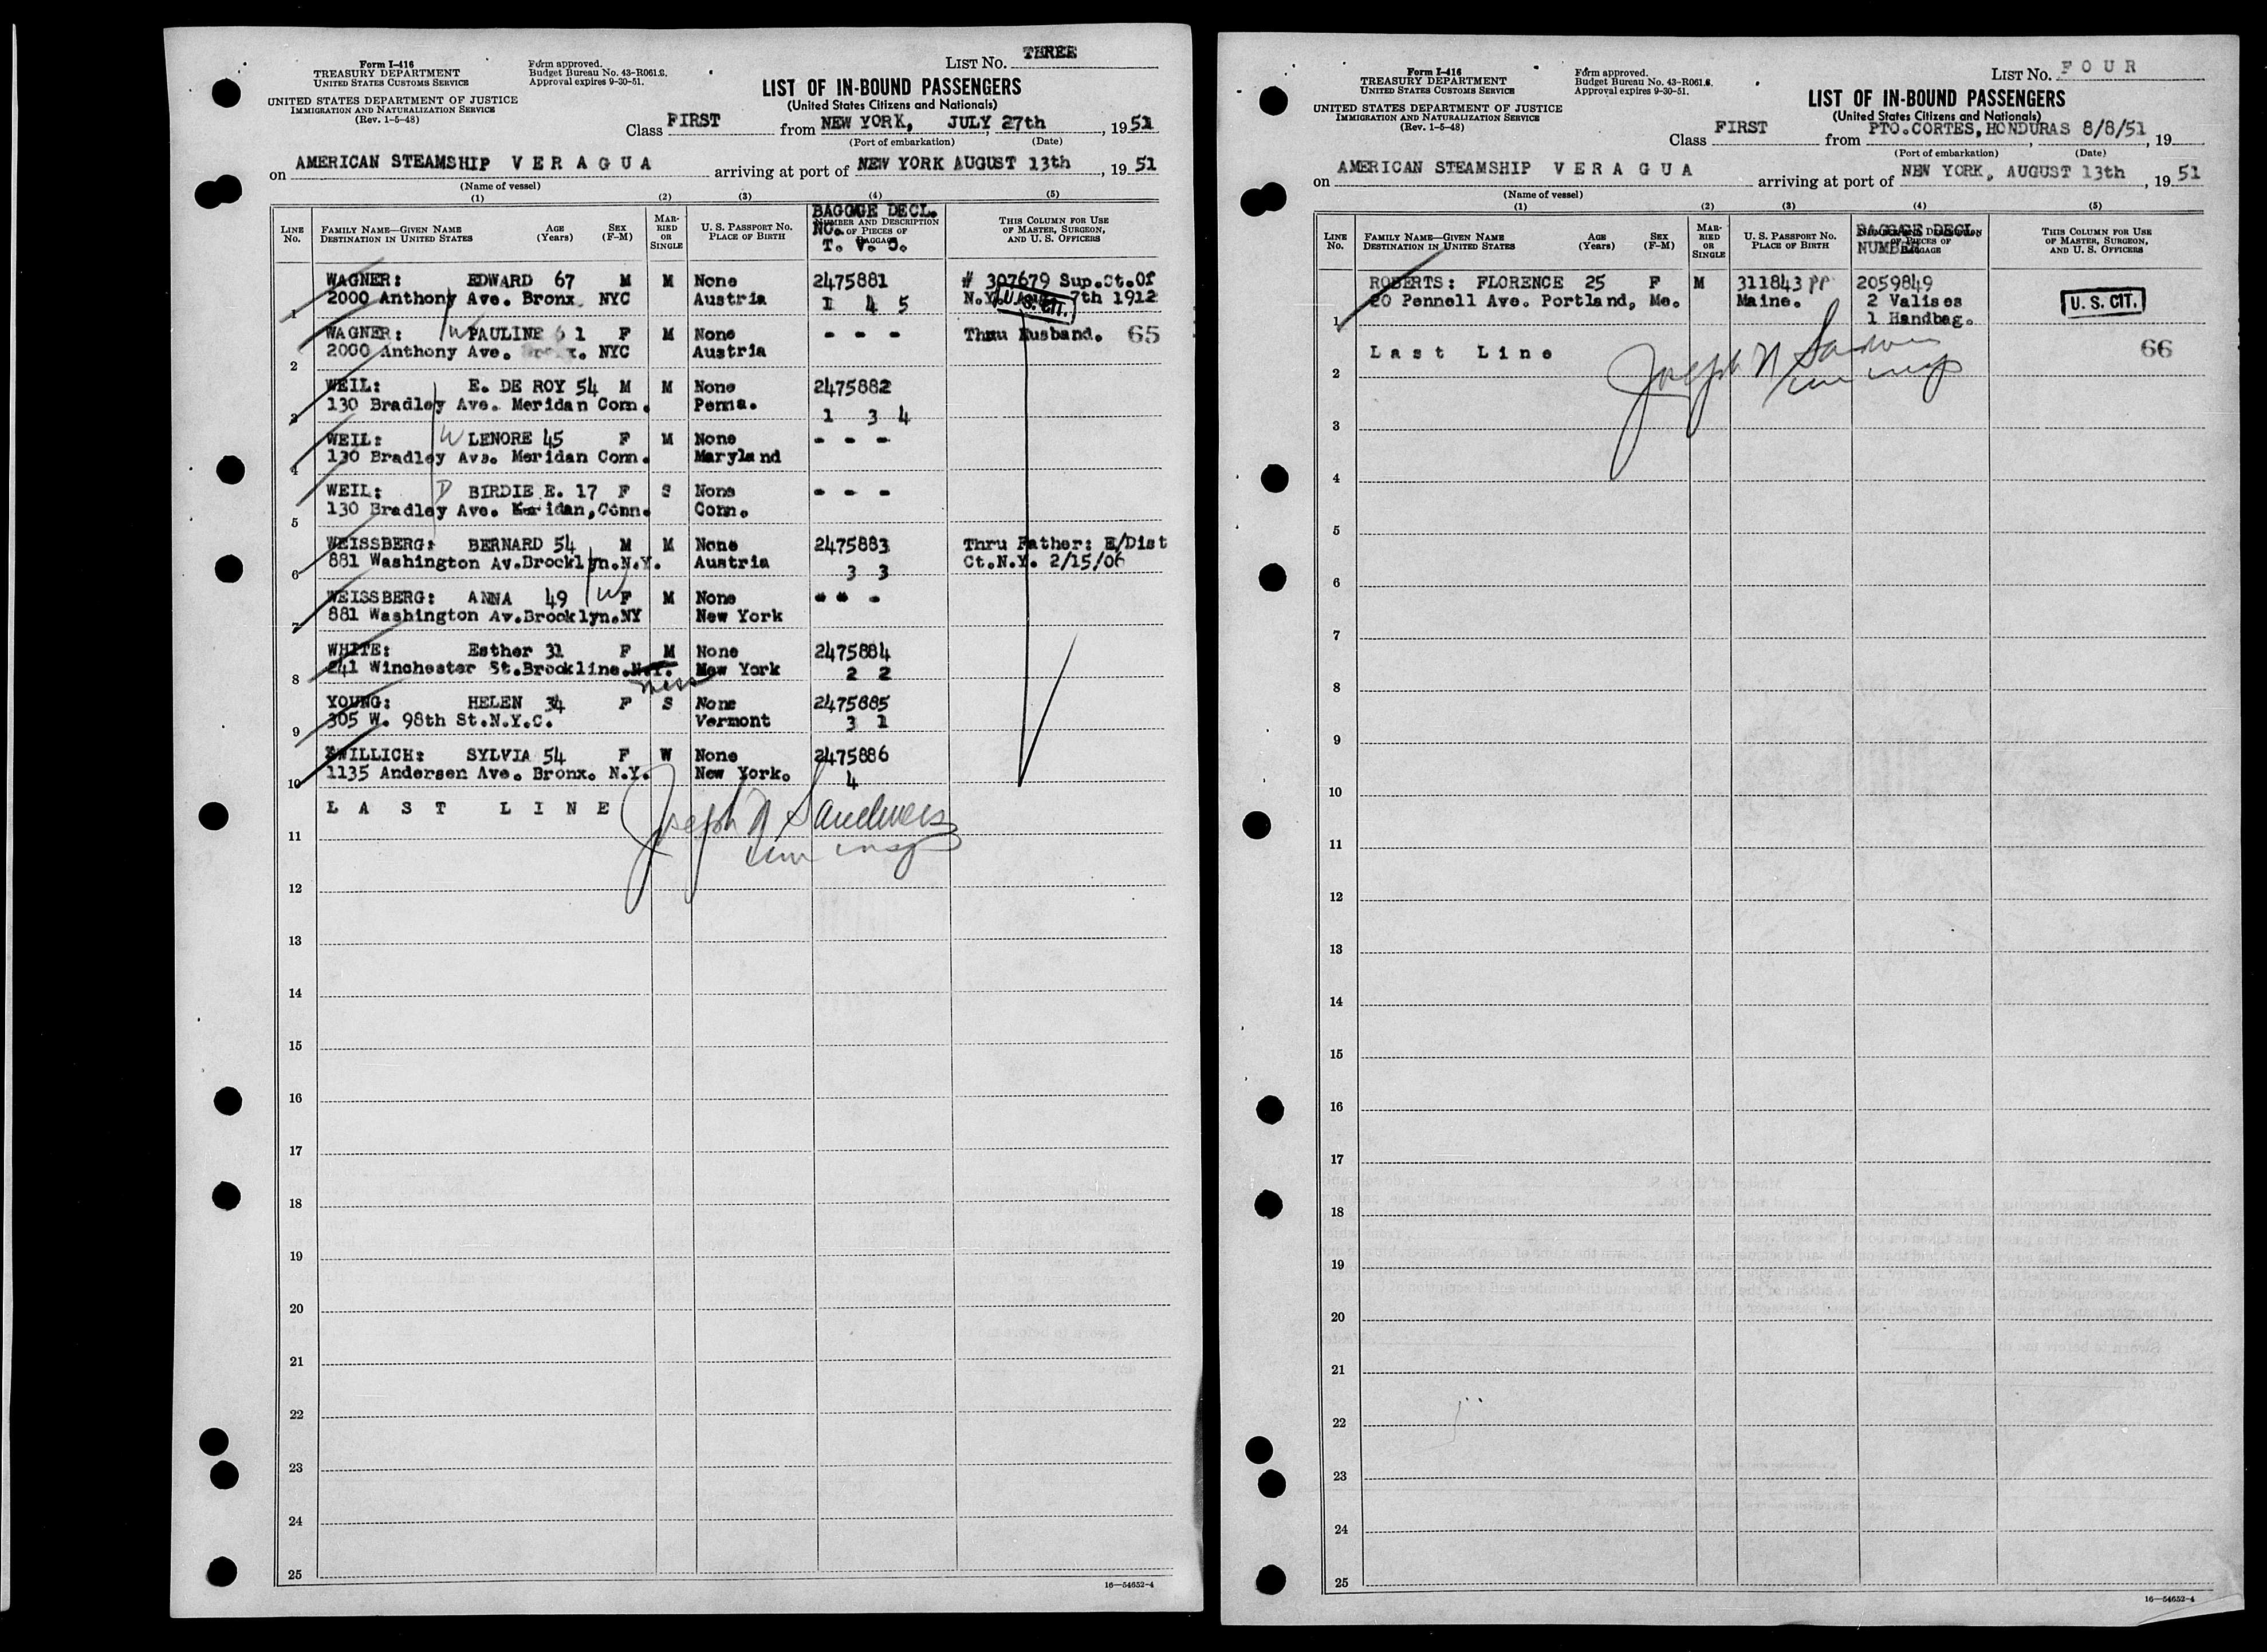 Form I-416
TREASURY DEPARTMENT
UNITED STATES CUSTOMS SERVICE
UNITED STATES DEPARTMENT OF JUSTICE
IMMIGRATION AND NATURALIZATION SERVICE
(Rev. 1-5-48)
Form approved.
Budget Bureau No. 43-R061.8.
Approval expires 9-30-51.
LIST NO. THREE
LIST OF IN-BOUND PASSENGERS
(United States Citizens and Nationals)
Class FIRST from NEW YORK, JULY 27th, 1951
(Port of embarkation) (Date)
on AMERICAN STEAMSHIP V E R A G U A arriving at port of NEW YORK AUGUST 13th, 1951
(Name of vessel)
(1) (2) (3) (4) (5)
LINE NO. FAMILY NAME—GIVEN NAME DESTINATION IN UNITED STATES AGE (Years) SEX (F-M) MARRIED OR SINGLE U. S. PASSPORT NO. PLACE OF BIRTH BAGGAGE DECL. NO. NUMBER AND DESCRIPTION OF PIECES OF BAGGAGE T. V. THIS COLUMN FOR USE OF MASTER, SURGEON, AND U. S. OFFICERS
WAGNER: EDWARD 67 M M None 2475881 # 307679 Sup.Ct.Of
1 2000 Anthony Ave. Bronx. NYC Austria 1 4 5 N.Y. 7th 1912
U. S. CIT.
WAGNER: W PAULINE 61 F M None - - - Thru Husband. 65
2 2000 Anthony Ave. NYC Austria
WEIL: E. DE ROY 54 M M None 2475882
3 130 Bradley Ave. Meridan Conn. Penna. 1 3 4
WEIL: W LENORE 45 F M None - - -
4 130 Bradley Ave. Meridan Conn. Maryland
WEIL: D BIRDIE E. 17 F S None - - -
5 130 Bradley Ave. Meridan, Conn. Conn.
WEISSBERG: BERNARD 54 M M None 2475883 Thru Father: E/Dist
6 881 Washington Av.Brooklyn.N.Y. Austria 3 3 Ct.N.Y. 2/15/06
WEISSBERG: ANNA 49 W F M None - - -
7 881 Washington Av.Brooklyn.NY New York
WHITE: Esther 31 F M None 2475884
8 241 Winchester St.Brookline.N.Y. New York 2 2
Mass
YOUNG: HELEN 34 F S None 2475885
9 305 W. 98th St.N.Y.C. Vermont 3 1
ZWILLICH: SYLVIA 54 F W None 2475886
10 1135 Andersen Ave. Bronx. N.Y. New York. 4
L A S T L I N E
Joseph N
imm insp
11
12
13
14
15
16
17
18
19
20
21
22
23
24
25
16—54652-4
Form I-416
TREASURY DEPARTMENT
UNITED STATES CUSTOMS SERVICE
UNITED STATES DEPARTMENT OF JUSTICE
IMMIGRATION AND NATURALIZATION SERVICE
(Rev. 1-5-48)
Form approved.
Budget Bureau No. 43-R061.8.
Approval expires 9-30-51.
LIST NO. F O U R
LIST OF IN-BOUND PASSENGERS
(United States Citizens and Nationals)
Class FIRST from PTO.CORTES, HONDURAS 8/8/51, 19
(Port of embarkation) (Date)
on AMERICAN STEAMSHIP V E R A G U A arriving at port of NEW YORK, AUGUST 13th, 1951
(Name of vessel)
(1) (2) (3) (4) (5)
LINE NO. FAMILY NAME—GIVEN NAME DESTINATION IN UNITED STATES AGE (Years) SEX (F-M) MARRIED OR SINGLE U. S. PASSPORT NO. PLACE OF BIRTH BAGGAGE DECL. NUMBER OF PIECES OF BAGGAGE THIS COLUMN FOR USE OF MASTER, SURGEON, AND U. S. OFFICERS
ROBERTS: FLORENCE 25 F M 311843 PP 2059849
20 Pennell Ave. Portland, Me. Maine. 2 Valises U. S. CIT.
1 1 Handbag.
L a s t L i n e 66
2
Joseph N
imm insp
3
4
5
6
7
8
9
10
11
12
13
14
15
16
17
18
19
20
21
22
23
24
25
16—54652-4